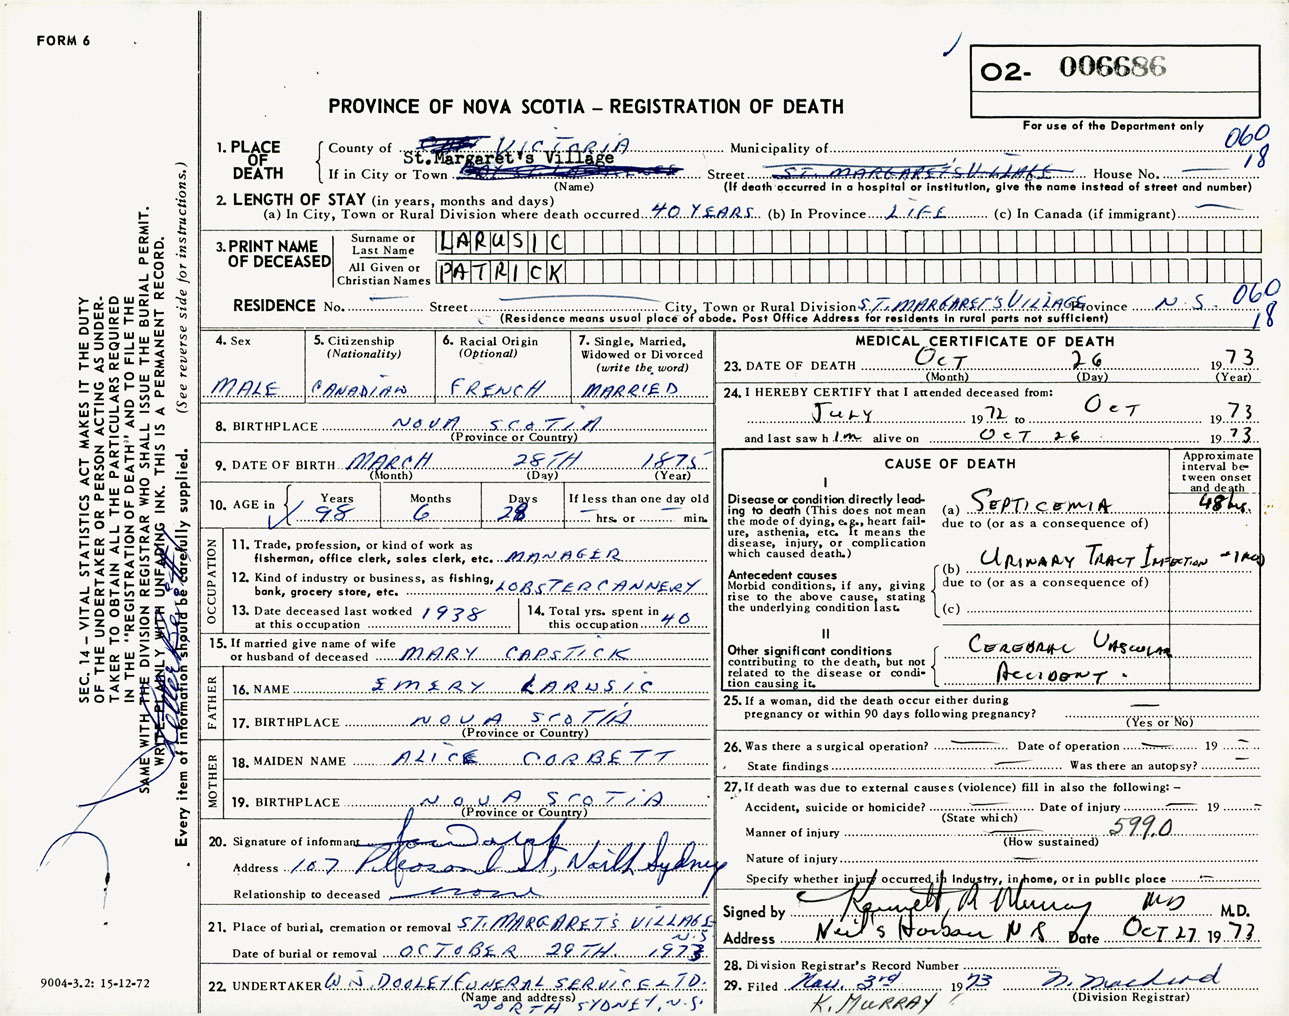 FORM 6
O2- 006686
PROVINCE OF NOVA SCOTIA – REGISTRATION OF DEATH
For use of the Department only
060
18
1. PLACE OF DEATH
County of VICTORIA Municipality of
St.Margaret's Village
If in City or Town Street ST. MARGARET'S VILLAGE House No. —
(Name) (If death occurred in a hospital or institution, give the name instead of street and number)
2. LENGTH OF STAY (in years, months and days)
(a) In City, Town or Rural Division where death occurred 40 YEARS (b) In Province LIFE (c) In Canada (if immigrant) —
3. PRINT NAME OF DECEASED
Surname or Last Name LARUSIC
All Given or Christian Names PATRICK
RESIDENCE No. — Street — City, Town or Rural Division ST. MARGARET'S VILLAGE Province N.S. 060
(Residence means usual place of abode. Post Office Address for residents in rural parts not sufficient) 18
4. Sex
MALE
5. Citizenship (Nationality)
CANADIAN
6. Racial Origin (Optional)
FRENCH
7. Single, Married, Widowed or Divorced (write the word)
MARRIED
8. BIRTHPLACE NOVA SCOTIA
(Province or Country)
9. DATE OF BIRTH MARCH 28TH 1875
(Month) (Day) (Year)
10. AGE in Years Months Days If less than one day old
98 6 28 — hrs. or — min.
OCCUPATION
11. Trade, profession, or kind of work as fisherman, office clerk, sales clerk, etc. MANAGER
12. Kind of industry or business, as fishing, bank, grocery store, etc. LOBSTER CANNERY
13. Date deceased last worked at this occupation 1938
14. Total yrs. spent in this occupation 40
15. If married give name of wife or husband of deceased MARY CAPSTICK
FATHER
16. NAME EMERY LARUSIC
17. BIRTHPLACE NOVA SCOTIA
(Province or Country)
MOTHER
18. MAIDEN NAME ALICE CORBETT
19. BIRTHPLACE NOVA SCOTIA
(Province or Country)
20. Signature of informant
Address 107 Pleasant St, North Sydney
Relationship to deceased none
21. Place of burial, cremation or removal ST. MARGARET'S VILLAGE N.S
Date of burial or removal OCTOBER 29TH. 1973
22. UNDERTAKER W J. DOOLEY FUNERAL SERVICE LTD.
(Name and address)
NORTH SYDNEY, N.S.
MEDICAL CERTIFICATE OF DEATH
23. DATE OF DEATH Oct 26 1973
(Month) (Day) (Year)
24. I HEREBY CERTIFY that I attended deceased from:
July 1972 to Oct 1973
and last saw him alive on Oct 26 1973
CAUSE OF DEATH
Approximate interval between onset and death
I
Disease or condition directly leading to death (This does not mean the mode of dying, e.g., heart failure, asthenia, etc. It means the disease, injury, or complication which caused death.)
(a) SEPTICEMIA 48 hrs.
due to (or as a consequence of)
Antecedent causes
Morbid conditions, if any, giving rise to the above cause, stating the underlying condition last.
(b) URINARY TRACT INFECTION
due to (or as a consequence of)
(c)
II
Other significant conditions contributing to the death, but not related to the disease or condition causing it.
CEREBRAL VASCULAR
ACCIDENT.
25. If a woman, did the death occur either during pregnancy or within 90 days following pregnancy? —
(Yes or No)
26. Was there a surgical operation? — Date of operation — 19 —
State findings — Was there an autopsy? —
27. If death was due to external causes (violence) fill in also the following: –
Accident, suicide or homicide? — Date of injury — 19 —
(State which)
Manner of injury — 599.0
(How sustained)
Nature of injury —
Specify whether injury occurred in industry, in home, or in public place —
Signed by Kenneth R Murray MD M.D.
Address Neil's Harbour N S Date Oct 27 1973
28. Division Registrar's Record Number
29. Filed Nov. 3rd 1973
(Division Registrar)
K. MURRAY
SEC. 14 – VITAL STATISTICS ACT MAKES IT THE DUTY
OF THE UNDERTAKER OR PERSON ACTING AS UNDER-
TAKER TO OBTAIN ALL THE PARTICULARS REQUIRED
IN THE "REGISTRATION OF DEATH" AND TO FILE THE
SAME WITH THE DIVISION REGISTRAR WHO SHALL ISSUE THE BURIAL PERMIT.
WRITE PLAINLY WITH UNFADING INK. THIS IS A PERMANENT RECORD.
Every item of information should be carefully supplied. (See reverse side for instructions.)
9004-3.2: 15-12-72